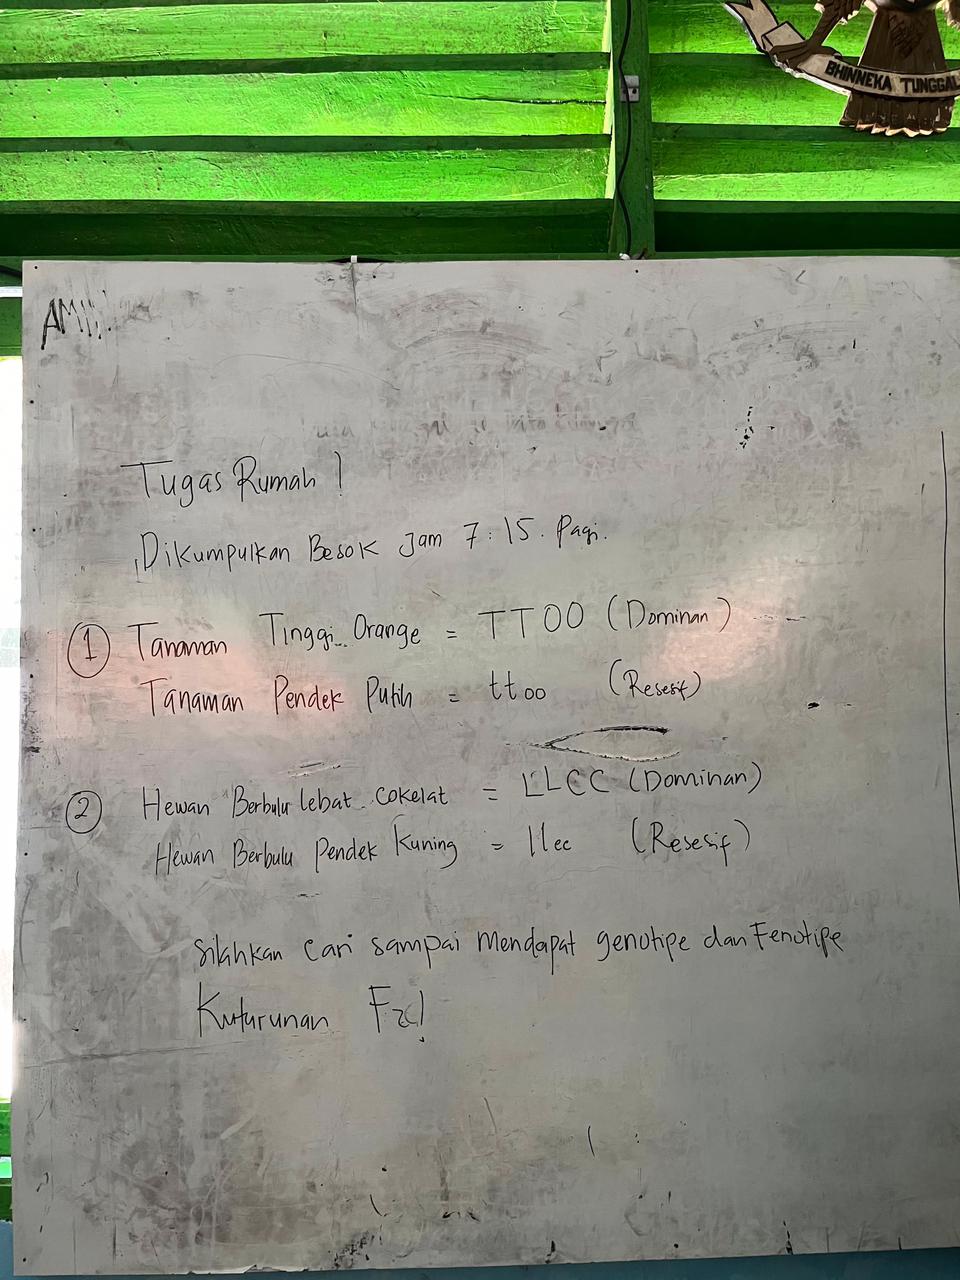 BHINNEKA TUNGGAL
AM
Tugas Rumah !
Dikumpulkan Besok Jam 7:15. Pagi.
① Tanaman Tinggi Orange = TTOO (Dominan)
Tanaman Pendek Putih = ttoo (Resesif)
② Hewan Berbulu lebat cokelat = LLCC (Dominan)
Hewan Berbulu Pendek Kuning = llcc (Resesif)
silahkan cari sampai Mendapat genotipe dan Fenotipe
Kuturunan F2!